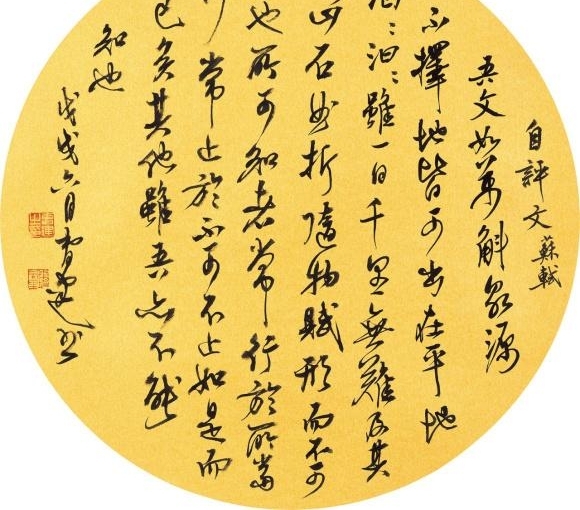 自評文 蘇軾
吾文如萬斛泉源
不擇地皆可出在平地
汩汩雖一日千里無難及其
山石曲折隨物賦形而不可
也所可知者常行於所當
常止於不可不止如是而
已矣其他雖吾亦不能
知也
戊戌六月